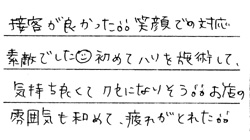 接客が良かった。。笑顔での対応
素敵でした☺初めてハリを施術して、
気持ち良くてクセになりそう。。お店の
雰囲気も和めて、疲れがとれた。。